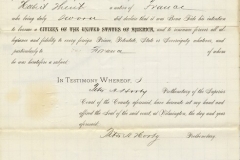 native of France
who being duly Sworn did declare that it was Bona Fide his intention
to become a CITIZEN OF THE UNITED STATES OF AMERICA, and to renounce forever all
allegiance and fidelity to every foreign Prince, Potentate, State or Sovereignty whatsoever, and
particularly to France of whom
he was heretofore a subject.
IN TESTIMONY WHEREOF, I
Prothonotary of the Superior
Court of the County aforesaid, have hereunto set my hand and affixed
the Seal of the said Court at Wilmington, the day and year
aforesaid.
Prothonotary.